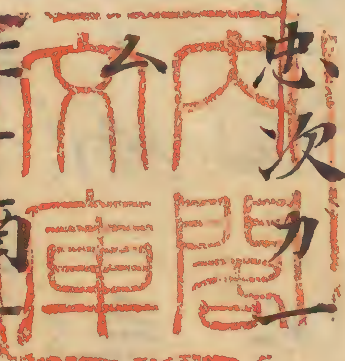 忠次力一
ム
内閣
文庫